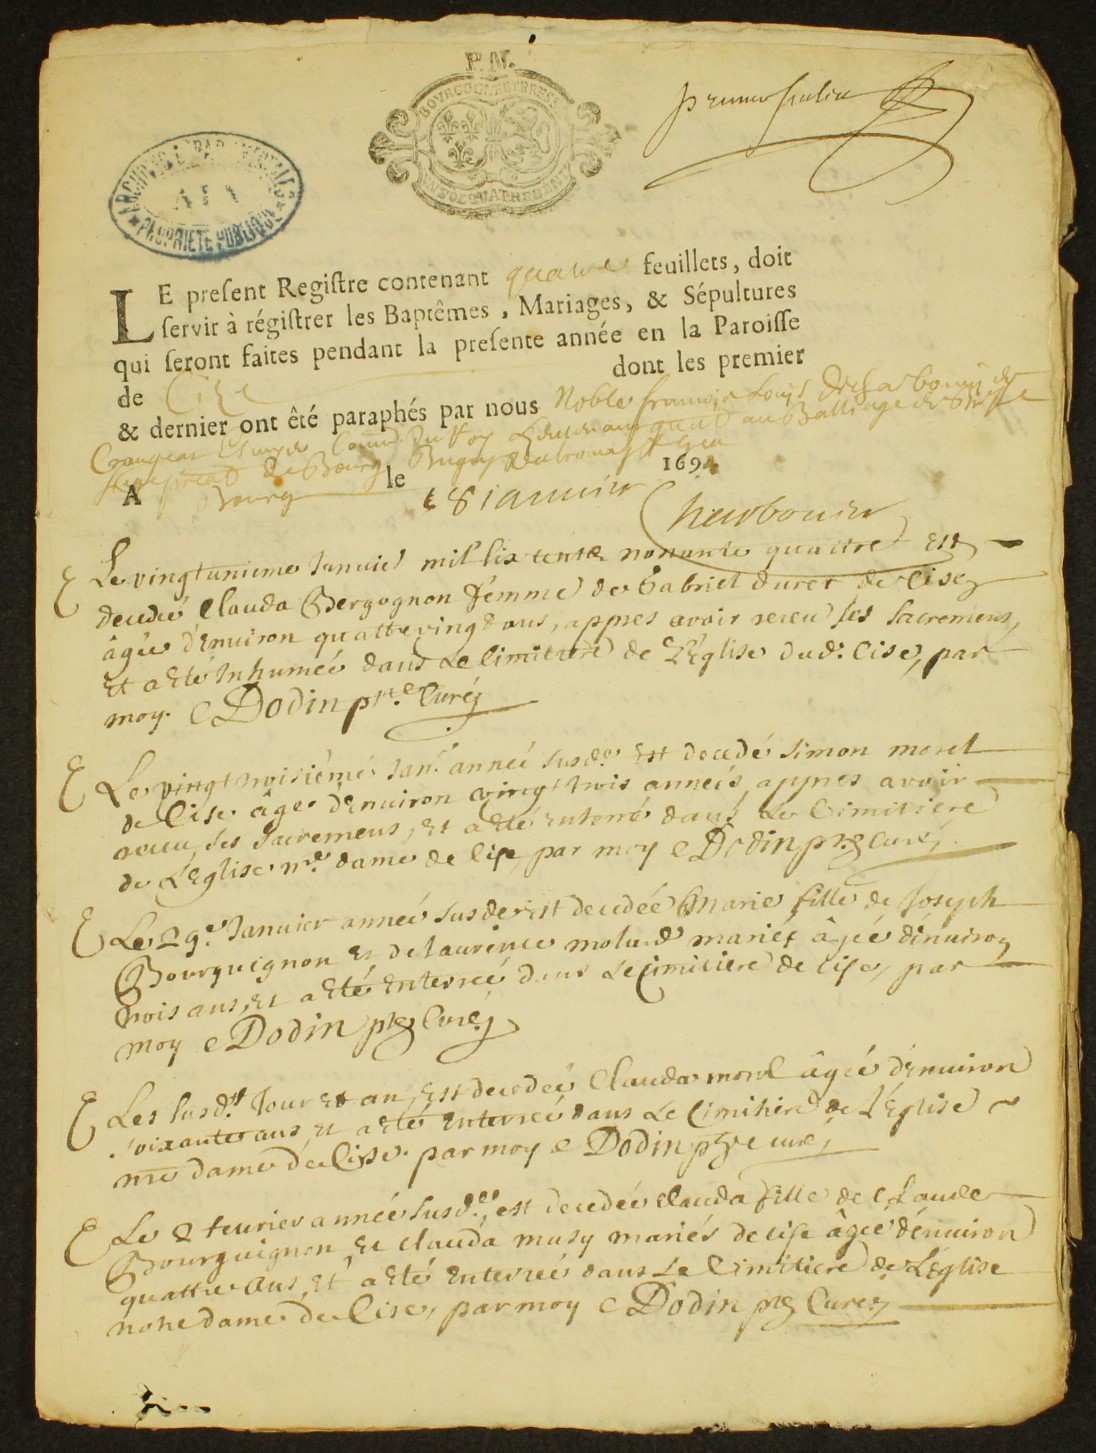 P. N.
BOURGOGNE BRESSE
premier feulliet
ARCHIVES DEPARTEMENTALES
AIN
PROPRIETE PUBLIQUE
LE preſent Regiſtre contenant quatre feuillets, doit
ſervir à régiſtrer les Baptêmes, Mariages, & Sépultures
qui ſeront faites pendant la preſente année en la Paroiſſe
de Cize dont les premier
& dernier ont êté paraphés par nous Noble francois Louis Decharbonnier
Crangeac Escuyer Bailliage de
de Bourg Bugey
A Bourg le 1694
18 ianuier Charbonnier
E Le vingtunieme Januier mil six cents nonante quattre Est
decedéé Clauda Bergognon femme de Gabriel duret de Cise
âgéé d'Enuiron quattevingt ans, appres avoir receu ses sacremens,
Et a Eté Inhuméé dans Le Cimitiere de L'Eglise dud: Cise, par
moy. C Dodin ptre Curéz
E Le vingt troisiémé Janr. annéé susde. Est decedé simon morel
de Cise âgé d'Enuiron vingt trois annéés, appres avoir
receu ses sacremens, Et a Eté Enterré dans Le Cimitiere
de L'Eglise nre. dame de Cise, par moy C Dodin ptre Curé,
E Le 29e. Januier annéé susde. Est decedéé Marie fille de Joseph
Bourguignon Et de laurence molard mariés âgéé d'énuiron
trois ans, Et a Eté Enterréé dans Le Cimitiere de cise, par
moy C Dodin ptre Curé,
E Les susdts Jour Et an, Est decedéé Clauda morel âgéé d'Enuiron
soixante ans Et a Eté Enterréé dans Le Cimitiere de L'Eglise
nre dame de Cise. par moy C Dodin ptre curé,
E Le 2 feurier annéé susde. est decedéé Clauda fille de Claude
Bourguignon Et Clauda musy mariés de cise âgéé d'énuiron
quattre ans, Et a Eté Enterréé dans Le Cimitiere de L'Eglise
notre dame de Cise, par moy C Dodin ptre Curéz